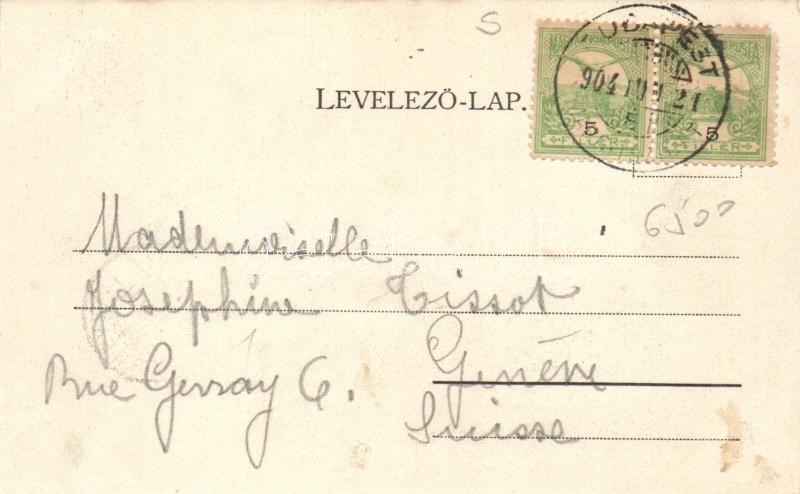 S
BUDAPEST
904
21
5 5
FILLÉR FILLÉR
LEVELEZÖ-LAP.
6500
Mademoiselle
Josephine Tissot
Rue Gevray 6. Genève
Suisse